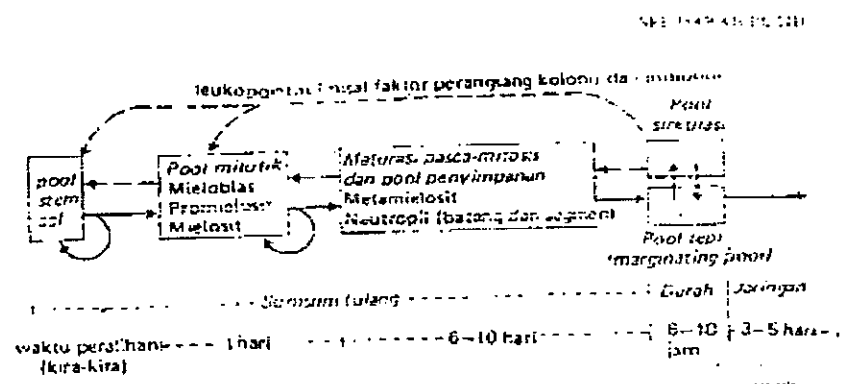 faktor perangsang koloni
Pool
sirkulasi
pool
stem
sel
Pool mitotik
Mieloblas
Promielosit
Mielosit
Maturasi pasca-mitosis
dan pool penyimpanan
Metamielosit
Neutropil (batang dan segmen)
Pool tepi
(marginating pool)
Sumsum tulang
Darah
Jaringan
waktu peralihan
(kira-kira)
1 hari
6–10 hari
6–10
jam
3–5 hari